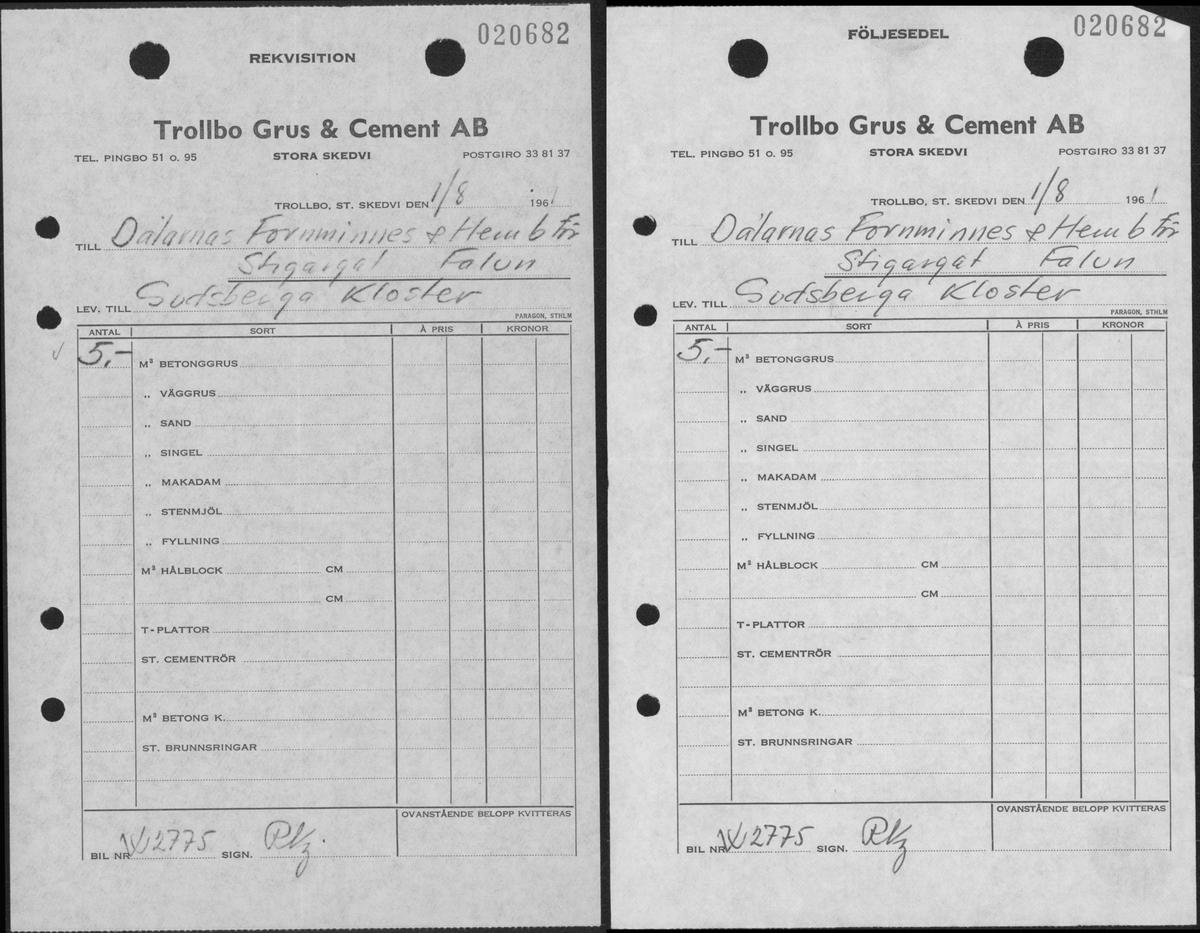 020682
REKVISITION
Trollbo Grus & Cement AB
TEL. PINGBO 51 o. 95 STORA SKEDVI POSTGIRO 33 81 37
TROLLBO, ST. SKEDVI DEN 1/8 1961
TILL Dalarnas Fornminnes & Hemb För
Stigargat Falun
LEV. TILL Gudsberga Kloster
PARAGON, STHLM
ANTAL SORT À PRIS KRONOR
5,- M³ BETONGGRUS
„ VÄGGRUS
„ SAND
„ SINGEL
„ MAKADAM
„ STENMJÖL
„ FYLLNING
M² HÅLBLOCK CM
CM
T-PLATTOR
ST. CEMENTRÖR
M³ BETONG K.
ST. BRUNNSRINGAR
OVANSTÅENDE BELOPP KVITTERAS
BIL NR W2775 SIGN.
020682
FÖLJESEDEL
Trollbo Grus & Cement AB
TEL. PINGBO 51 o. 95 STORA SKEDVI POSTGIRO 33 81 37
TROLLBO, ST. SKEDVI DEN 1/8 1961
TILL Dalarnas Fornminnes & Hemb För
Stigargat Falun
LEV. TILL Gudsberga Kloster
PARAGON, STHLM
ANTAL SORT À PRIS KRONOR
5,- M³ BETONGGRUS
„ VÄGGRUS
„ SAND
„ SINGEL
„ MAKADAM
„ STENMJÖL
„ FYLLNING
M² HÅLBLOCK CM
CM
T-PLATTOR
ST. CEMENTRÖR
M³ BETONG K.
ST. BRUNNSRINGAR
OVANSTÅENDE BELOPP KVITTERAS
BIL NR W2775 SIGN.